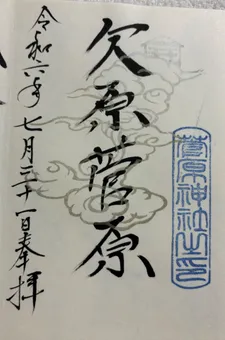 菅原神社之印
欠原菅原
令和六年 七月三十一日奉拝